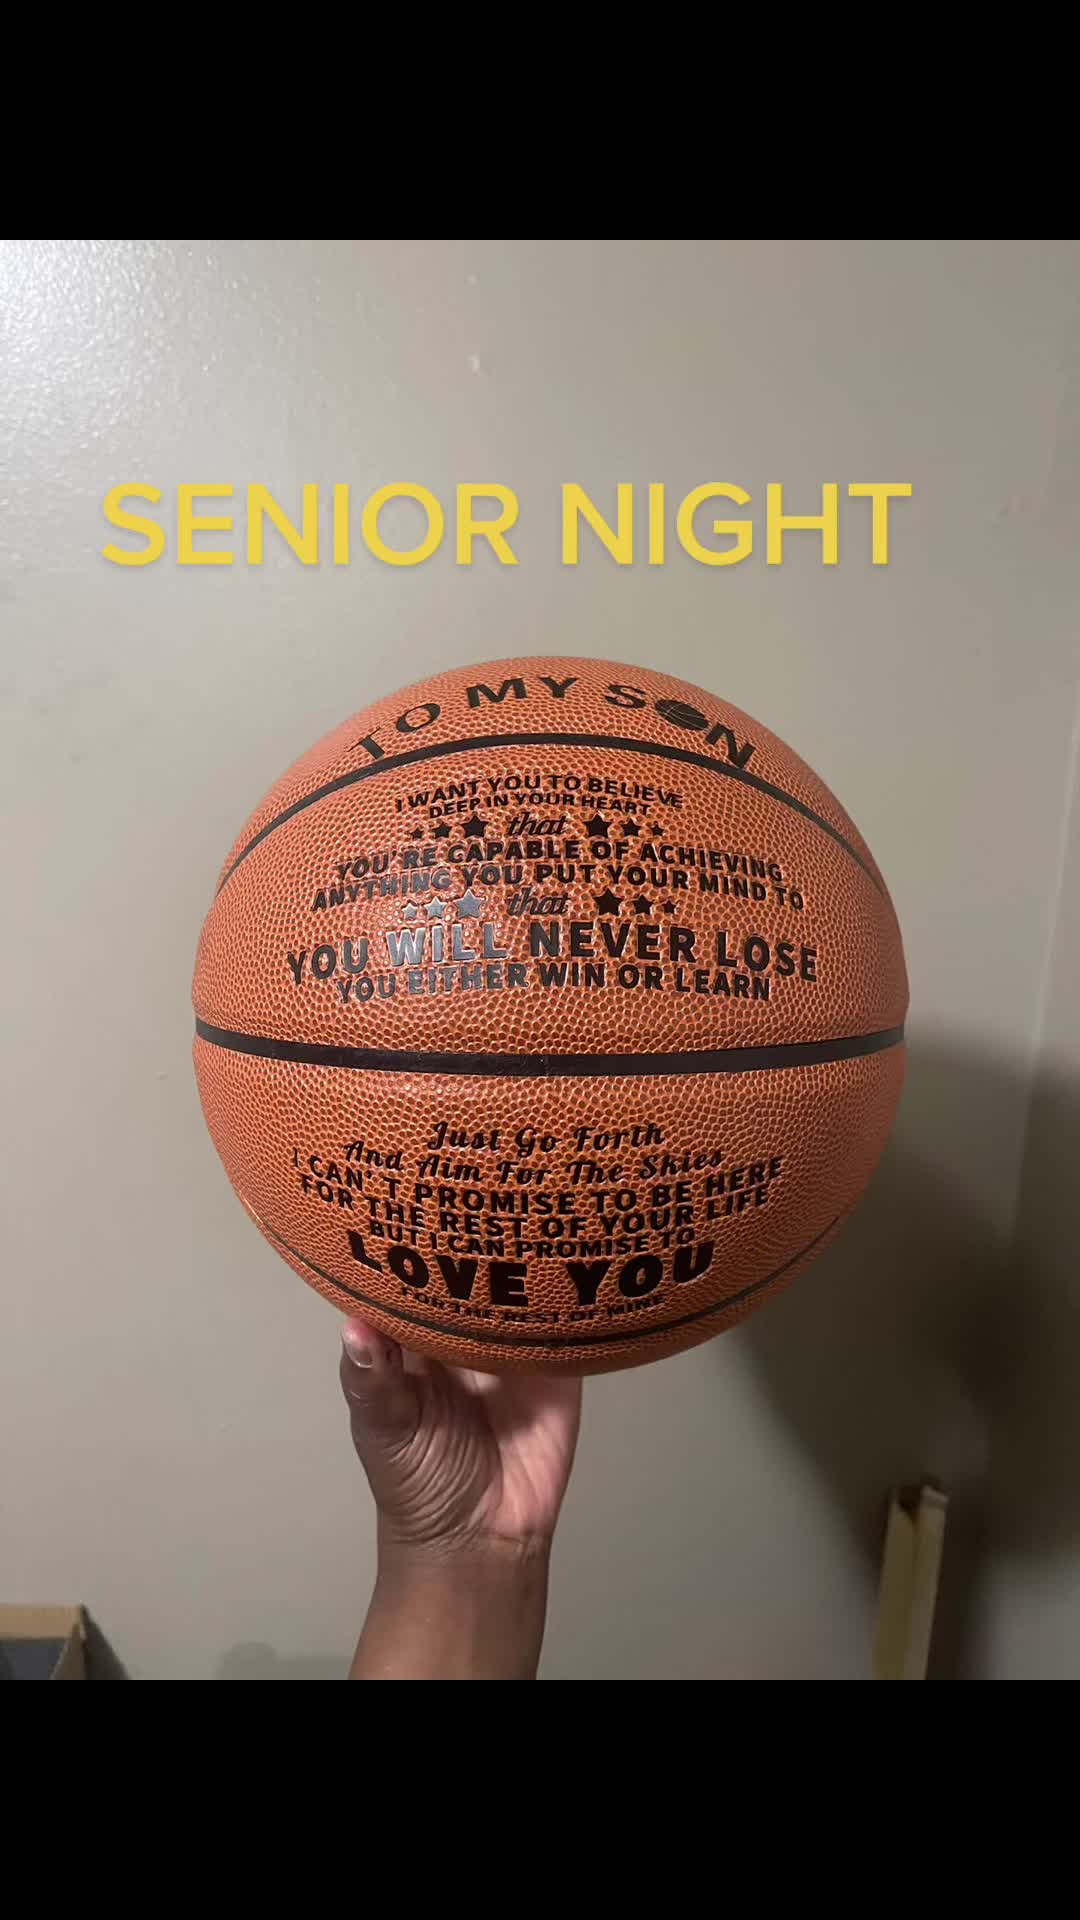 SENIOR NIGHT
TO MY SON
I WANT YOU TO BELIEVE
DEEP IN YOUR HEART
that
YOU'RE CAPABLE OF ACHIEVING
ANYTHING YOU PUT YOUR MIND TO
that
YOU WILL NEVER LOSE
YOU EITHER WIN OR LEARN
Just Go Forth
And Aim For The Skies
I CAN'T PROMISE TO BE HERE
FOR THE REST OF YOUR LIFE
BUT I CAN PROMISE TO
LOVE YOU
FOR THE REST OF MINE